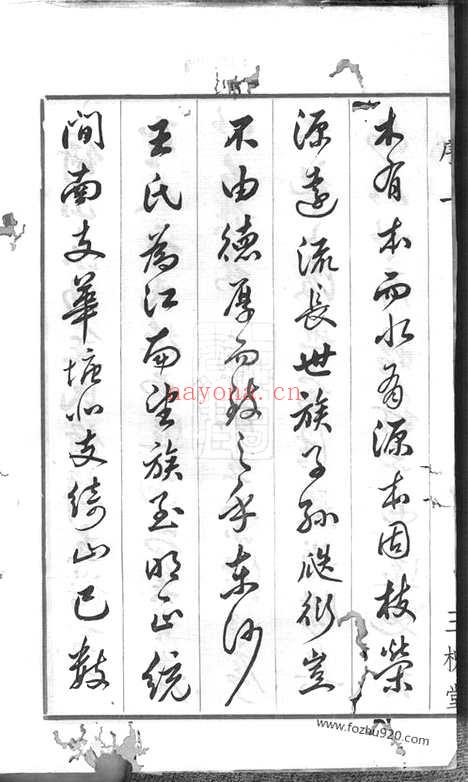 序 一 三槐堂
木有本而水有源本固枝榮
源遠流長世族子孫瓞衍豈
不由德厚而致之乎東沙
王氏為江南望族至明正統
間南支華塘北支綺山已數
nayona.cn
www.fozhu920.com